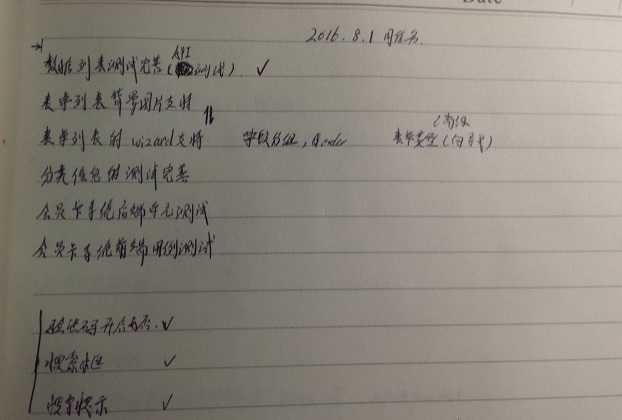 2016.8.1
数据列表测试完善(API测试) ✓
表单列表背景图片支持
表单列表的wizard支持 字段分组, 表单类型(
分类信息的测试完善
会员卡系统后端单元测试
会员卡系统前端用例测试
验证码开启与否 ✓
搜索框 ✓
搜索提示 ✓